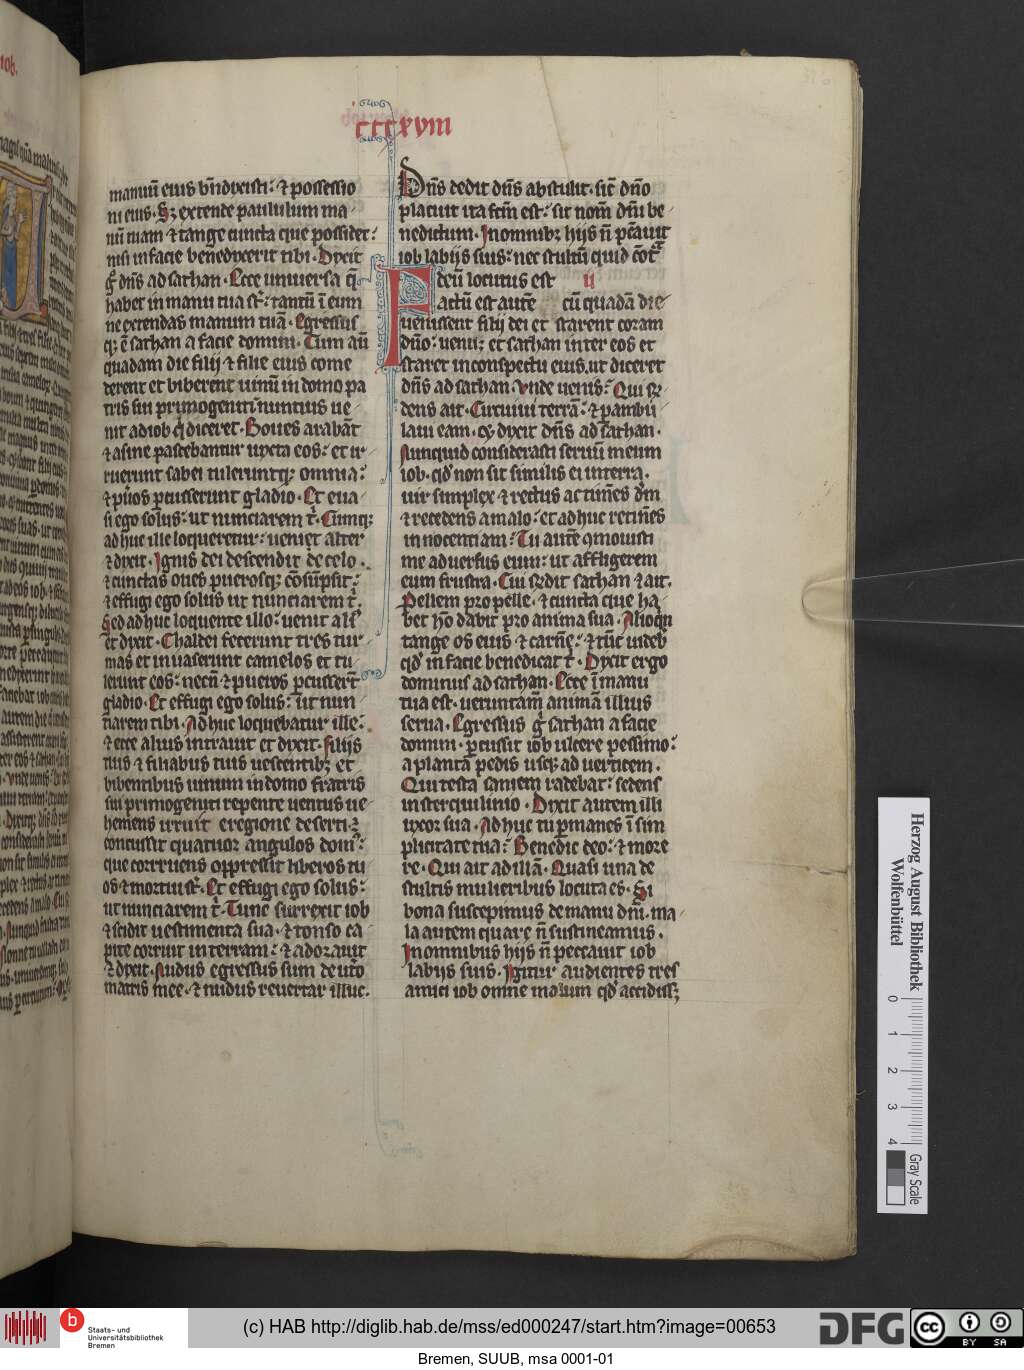 cccxviii
manuū eius bn̄dixisti: ⁊ possessio
ni eius. Sꝫ extende paululum ma
nū tuam ⁊ tange cuncta que possidet:
nisi in facie benedixerit tibi. Dixit
g̊ dn̄s ad sathan. Ecce uniuersa q̄
habet in manu tua st̄: tantū ī eum
ne extendas manum tuā. Egressus
qꝫ ē sathan a facie domini. Cum aū
quadam die filij ⁊ filie eius come
derent et biberent uinū in domo pa
tris sui primogeniti: nuntius ue
nit ad iob q̇ diceret. Boues arabāt
⁊ asine pascebantur iuxta eos: et ir
ruerunt sabei tuleruntqꝫ omnia:
⁊ pu̇os ꝑcusserunt gladio. Et eua
si ego solus: ut nunciarem ṫ. Cumqꝫ
adhuc ille loqueretur: ueniet alter
⁊ dixit. Ignis dei descendit de celo.
⁊ cunctas oues puerosqꝫ cōsūpsit:
⁊ effugi ego solus ut nunciarem ṫ.
Sed adhuc loquente illo: uenit ali᷒
et dixit. Chaldei fecerunt tres tur
mas et inuaserunt camelos et tu
lerunt eos: necn̄ ⁊ pueros ꝑcusser̄t
gladio. Et effugi ego solus: ut nun
tiarem tibi. Adhuc loquebatur ille:
⁊ ecce alius intrauit et dixit. Filijs
tuis ⁊ filiabus tuis uescentibꝫ et
bibentibus uinum in domo fratris
sui primogeniti repente uentus ue
hemens irruit e regione deserti. ⁊
concussit quatuor angulos dom᷒:
que corruens oppressit liberos tu
os ⁊ mortui st̄. Et effugi ego solus:
ut nunciarem ṫ. Tunc surrexit iob
⁊ scidit uestimenta sua. ⁊ tonso ca
pite corruit in terram: ⁊ adorauit
⁊ dixit. Nudus egressus sum de ut̄o
matris mee. ⁊ nudus reuertar illuc.
Dn̄s dedit dn̄s abstulit. sic̄ dn̄o
placuit ita fc̄m est: sit nom̄ dn̄i be
nedictum. In omnibꝫ hijs n̄ pc̄auit
iob labijs suis: nec stultū quid cōt̄
deū locutus est ij
Factū est autē cū quadā die
uenissent filij dei et starent coram
dn̄o: uenit et sathan inter eos et
staret in conspectu eius. ut diceret
dn̄s ad sathan. Unde uenis: Qui rn̄
dens ait. Circuiui terrā: ⁊ ꝑambu
laui eam. Et dixit dn̄s ad sathan.
Nunquid considerasti seruū meum
iob. qd̓ non sit similis ei in terra.
uir simplex ⁊ rectus ac timēs dm̄
⁊ recedens a malo: et adhuc retinēs
innocentiam: Tu autē ꝯmouisti
me aduersus eum: ut affligerem
eum frustra. Cui rn̄dit sathan ⁊ ait.
Pellem pro pelle. ⁊ cuncta que ha
bet h̊o dabit pro anima sua. Alioqn̄
tange os eius ⁊ carnē: ⁊ tūc uideb
qd̓ in facie benedicat ṫ. Dixit ergo
dominus ad sathan. Ecce ī manu
tua est. ueruntam̄ animā illius
serua. Egressus g̊ sathan a facie
domini. ꝑcussit iob ulcere pessimo:
a planta pedis usqꝫ ad uerticem.
Qui testa saniem radebat: sedens
in sterquilinio. Dixit autem illi
uxor sua. Adhuc tu ꝑmanes ī sim
plicitate tua: Benedic deo: ⁊ more
re. Qui ait ad illā. Quasi una de
stultis mulieribus locuta es. Si
bona suscepimus de manu dn̄i. ma
la autem quare n̄ sustineamus.
In omnibus hijs n̄ peccauit iob
labijs suis. Igitur audientes tres
amici iob omne malum qd̓ accidissꝫ
Herzog August Bibliothek
Wolfenbüttel
0 1 2 3 4
Gray Scale
b
Staats- und
Universitätsbibliothek
Bremen
(c) HAB http://diglib.hab.de/mss/ed000247/start.htm?image=00653
DFG
cc
BY SA
Bremen, SUUB, msa 0001-01